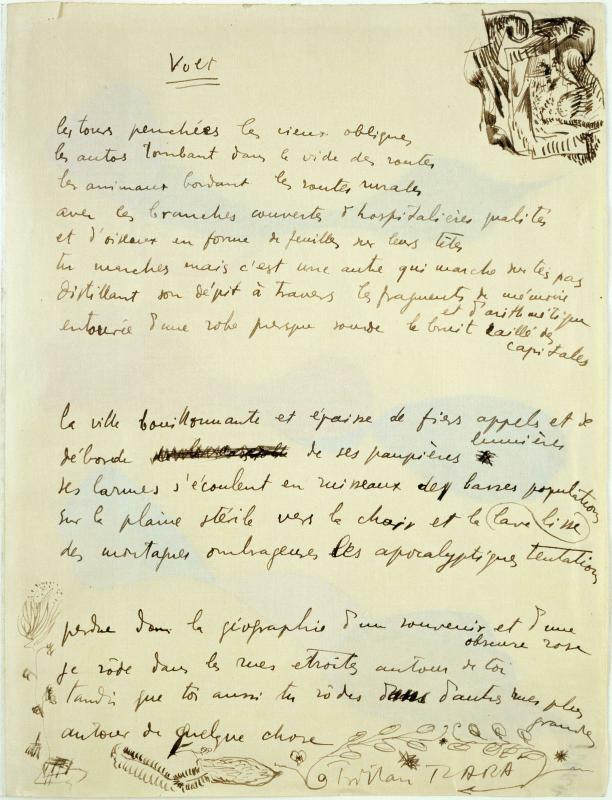 Volt
les tours penchées les cieux obliques
les autos tombant dans le vide des routes
les animaux bordant les routes rurales
avec les branches couvertes d'hospitalières qualités
et d'oiseaux en forme de feuilles sur leurs têtes
tu marches mais c'est une autre qui marche sur tes pas
distillant son dépit à travers les fragments de mémoire
et d'arithmétique
entourée d'une robe presque sourde le bruit caillé des
capitales
la ville bouillonnante et épaisse de fiers appels et de
lumières
déborde de ses paupières
ses larmes s'écoulent en ruisseaux de basses populations
sur la plaine stérile vers la chair et la lave lisse
des montagnes ombrageuses les apocalyptiques tentations
perdue dans la géographie d'un souvenir et d'une
obscure rose
je rôde dans les rues étroites autour de toi
tandis que toi aussi tu rôdes dans d'autres rues plus
grandes
autour de quelque chose
Tristan TZARA